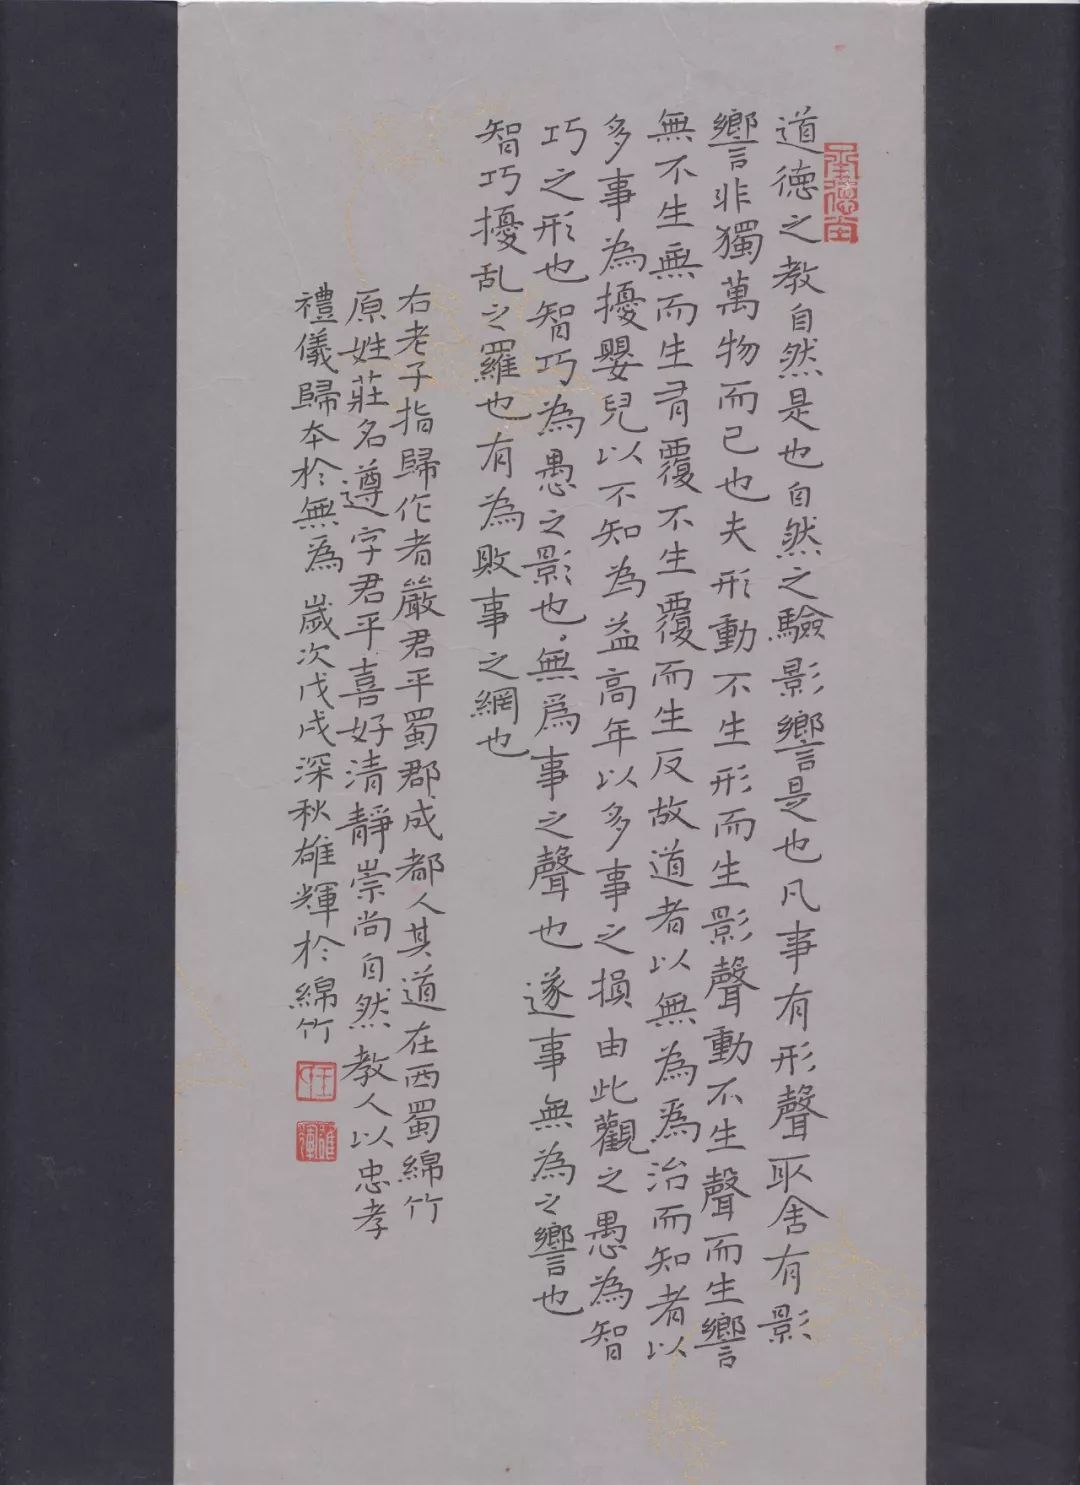 道德之教自然是也自然之驗影響是也凡事有形聲取舍有影
響非獨萬物而已也夫形動不生形而生影聲動不生聲而生響
無不生無而生有覆不生覆而生反故道者以無為為治而知者以
多事為擾嬰兒以不知為益高年以多事之損由此觀之愚為智
巧之形也智巧為愚之影也無為事之聲也遂事無為之響也
智巧擾乱之羅也有為敗事之網也
右老子指歸作者嚴君平蜀郡成都人其道在西蜀綿竹
原姓莊名遵字君平喜好清靜崇尚自然教人以忠孝
禮儀歸本於無為 歲次戊戌深秋雄輝於綿竹